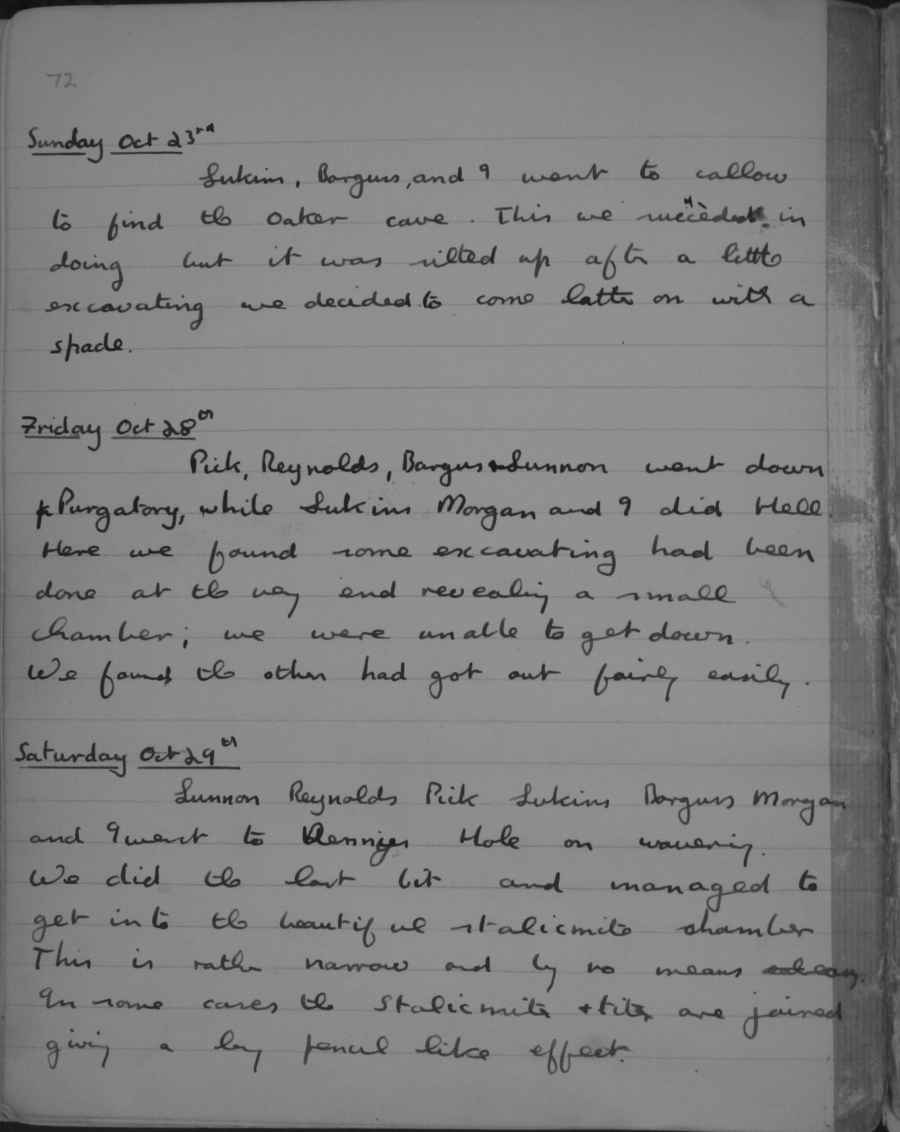 72
Sunday Oct 23rd
Lukins, Bargus, and I went to callow
to find the Oaker cave. This we succeeded in
doing but it was silted up after a little
excavating we decided to come latter on with a
spade.
Friday Oct 28th
Pick, Reynolds, Bargus + Lunnon went down
Purgatory, while Lukins Morgan and I did Hell.
Here we found some excavating had been
done at the very end revealing a small
chamber; we were unable to get down.
We found the other had got out fairly easily.
Saturday Oct 29th
Lunnon Reynolds Pick Lukins Bargus Morgan
and I went to Hole on wavering.
We did the last bit and managed to
get into the beautiful stalicmite chamber
This is rather narrow and by no means
In some cases the Stalicmite + tite are joined
giving a long pencil like effect.